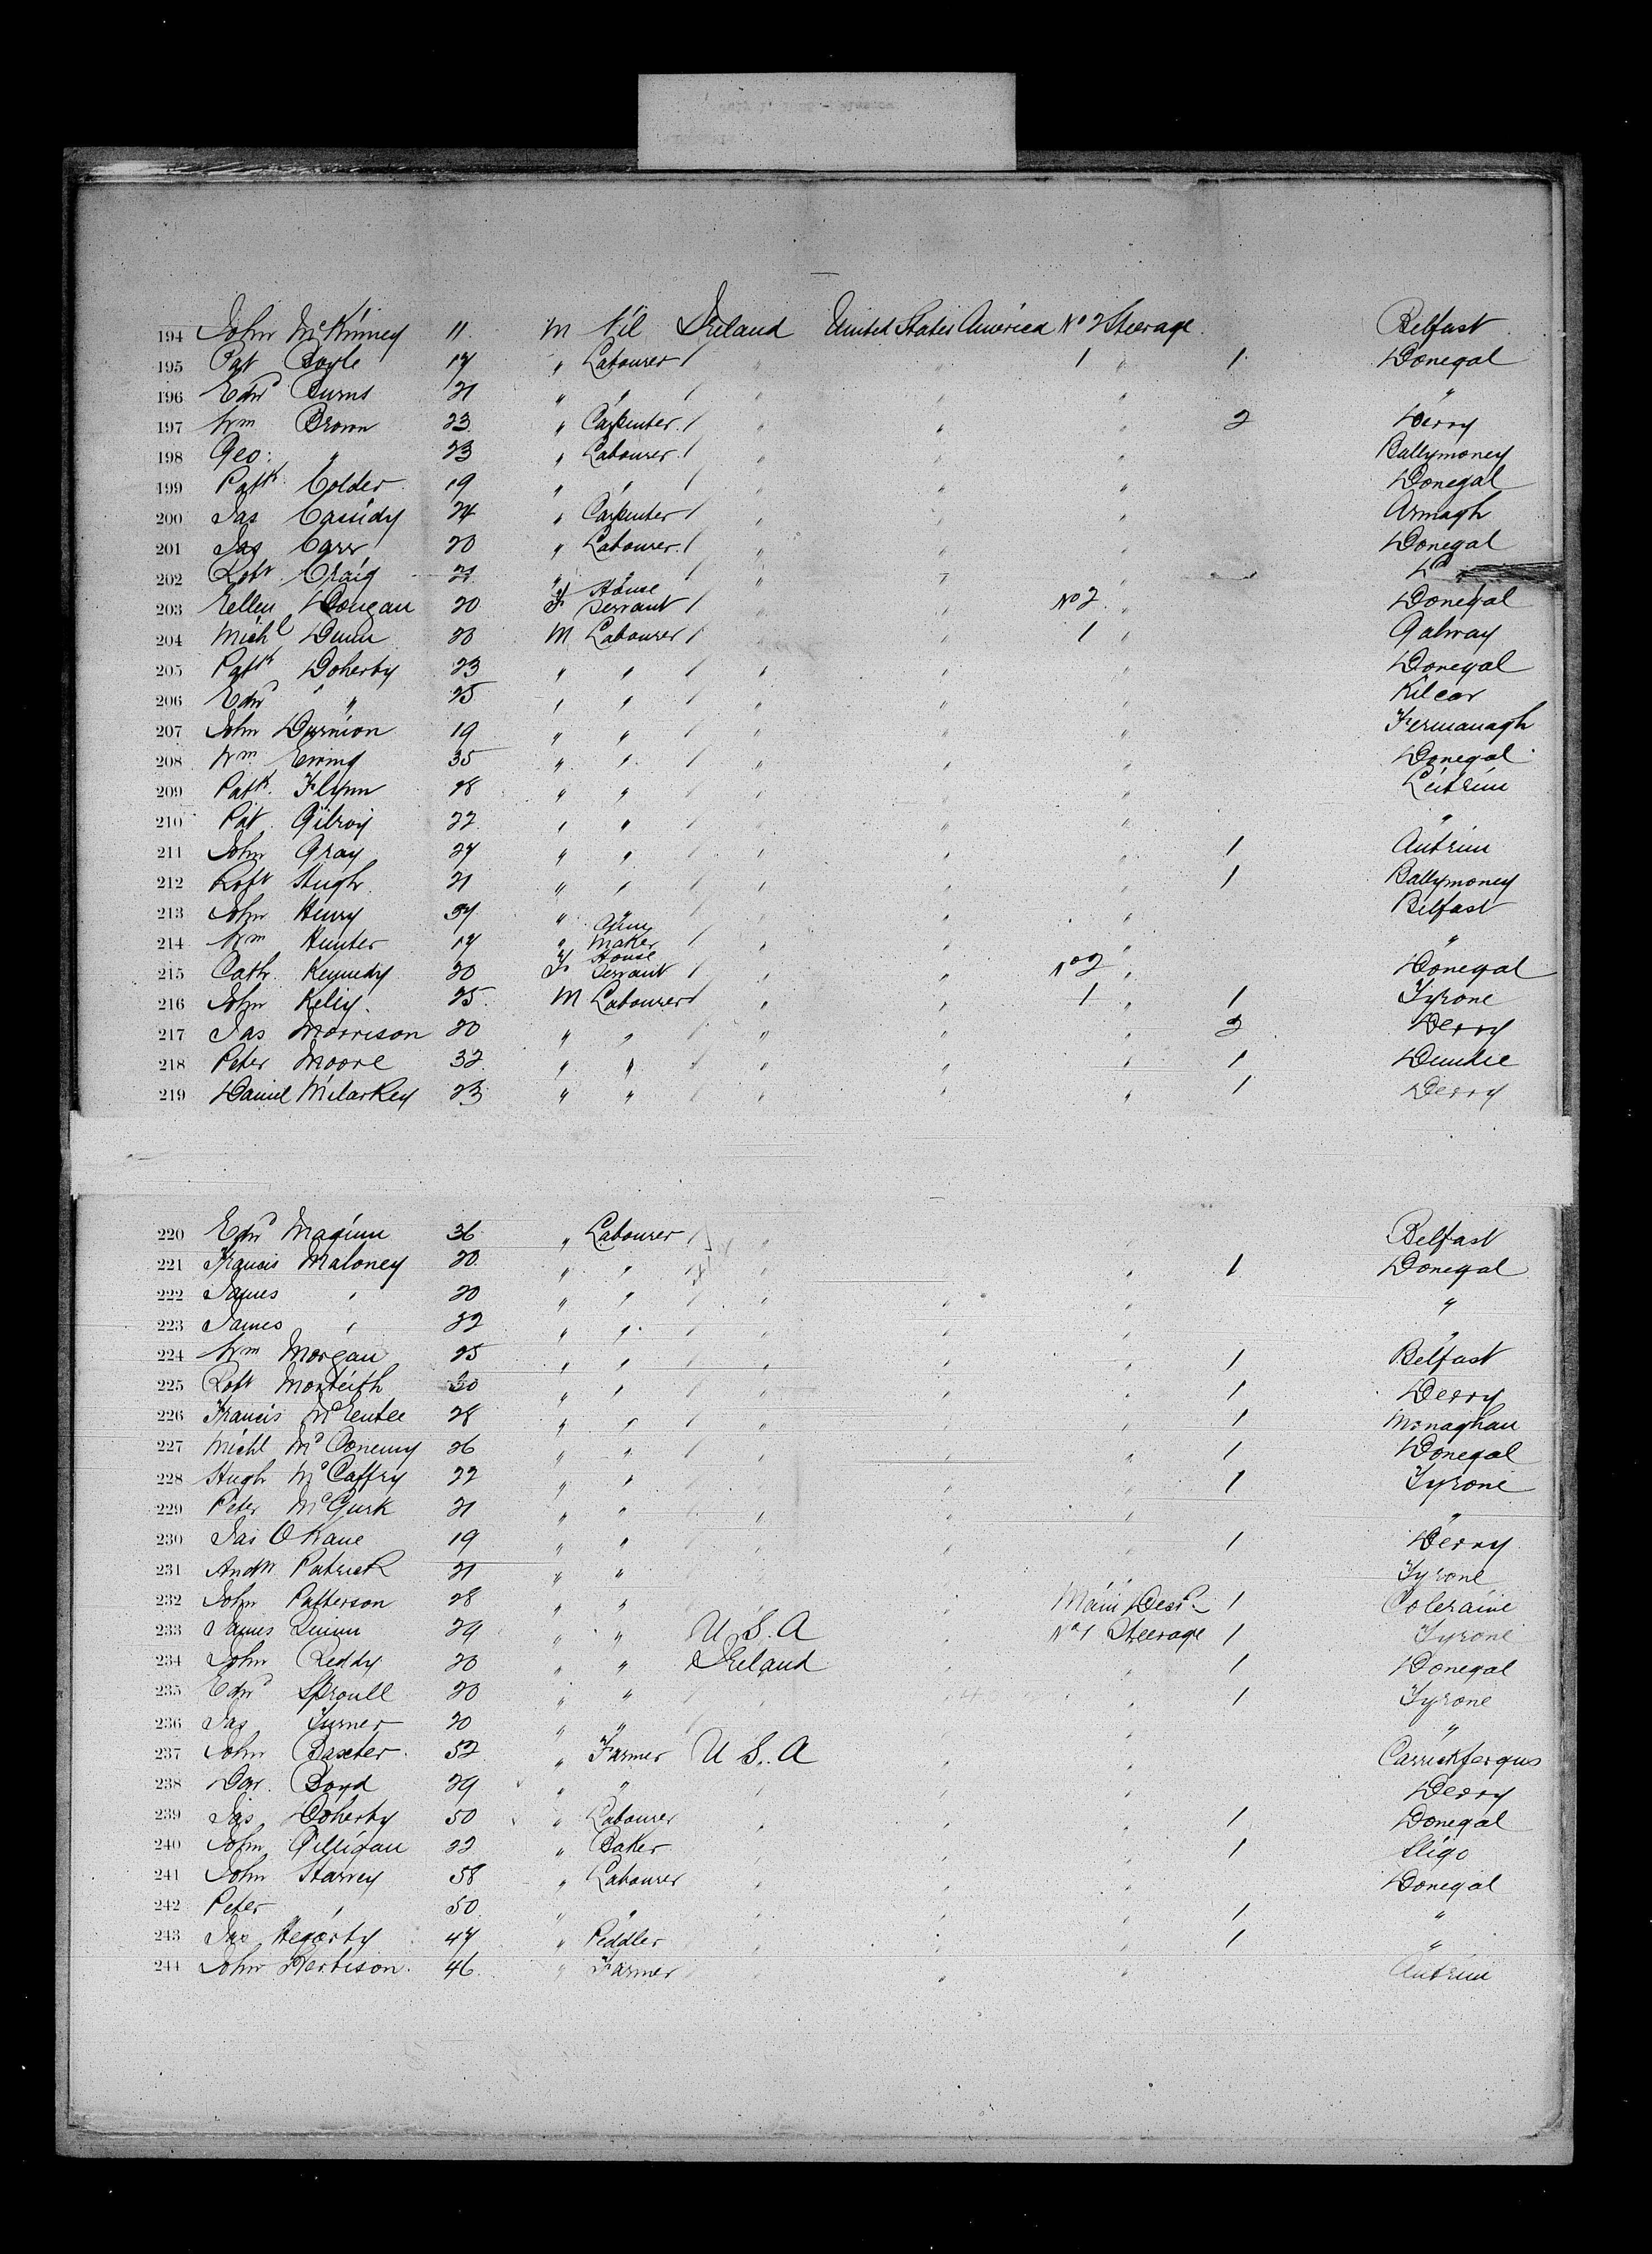 194 John McKinney 11 M Nil Ireland United States America No 2 Steerage Belfast
195 Pat Boyle 17 " Labourer / " " 1 " 1 Donegal
196 Edwd Burns 21 " " / " " " "
197 Wm Brown 23 " Carpenter / " " " 2 Derry
198 Geo: " 23 " Labourer / " " " Ballymoney
199 Patk Colder 19 " " / " " " Donegal
200 Jas Cassidy 24 " Carpenter / " " " Armagh
201 Jas Carr 20 " Labourer / " " " Donegal
202 Robt Craig 21 " " / " " "
203 Eellen Dougan 20 F House Servant / " " No 2 " Donegal
204 Michl Dunn 20 M Labourer / " " 1 " Galway
205 Patk Doherty 23 " " / " " " Donegal
206 Edwd " 25 " " / " " " Kilcar
207 John Durnion 19 " " / " " " Fermanagh
208 Wm Ewing 35 " " / " " " Donegal
209 Patk Flynn 28 " " / " " " Leitrim
210 Pat Gilroy 22 " " / " " " "
211 John Gray 27 " " / " " " 1 Antrim
212 Robt Hugh 21 " " / " " " 1 Ballymoney
213 John Henry 37 " " / " " " Belfast
214 Wm Hunter 17 " Maker / " " " "
215 Cath Kennedy 20 F House Servant / " " No 2 " Donegal
216 John Kelly 25 M Labourer / " " 1 " 1 Tyrone
217 Jas Morrison 20 " " / " " " 2 Derry
218 Peter Moore 32 " " / " " " 1
219 Daniel Milarkey 23 " " / " " " 1 Derry
220 Edwd Maginn 36 " Labourer / " " " Belfast
221 Francis Maloney 20 " " / " " " 1 Donegal
222 James " 20 " " / " " " "
223 James " 22 " " / " " " "
224 Wm Morgan 25 " " / " " " 1 Belfast
225 Robt Monteith 30 " " / " " " 1 Derry
226 Francis McEntee 28 " " / " " " 1 Monaghan
227 Michl McConemy 26 " " / " " " 1 Donegal
228 Hugh McCaffry 22 " " / " " " 1 Tyrone
229 Peter McGurk 21 " " " " " "
230 Jas O Kane 19 " " " " " 1 Derry
231 Andw Patrick 21 " " " " " Tyrone
232 John Patterson 28 " " " " Main 1 Coleraine
233 James Quinn 29 " " U.S.A " No 1 Steerage 1 Tyrone
234 John Reddy 20 " " Ireland " " 1 Donegal
235 Edwd Sproull 20 " " / " " " 1 Tyrone
236 Jas Turner 20 " " / " " " "
237 John Baxter 52 " Farmer U.S.A " " Carrickfergus
238 Dav. Boyd 29 " " " " " Derry
239 Jas Doherty 50 " Labourer " " " 1 Donegal
240 John Gilligan 22 " Baker " " " 1 Sligo
241 John Harvey 58 " Labourer " " " Donegal
242 Peter " 50 " " " " " 1 "
243 Jas Hegarty 47 " Peddler " " " 1 "
244 John Herbison 46 " Farmer " " " Antrim